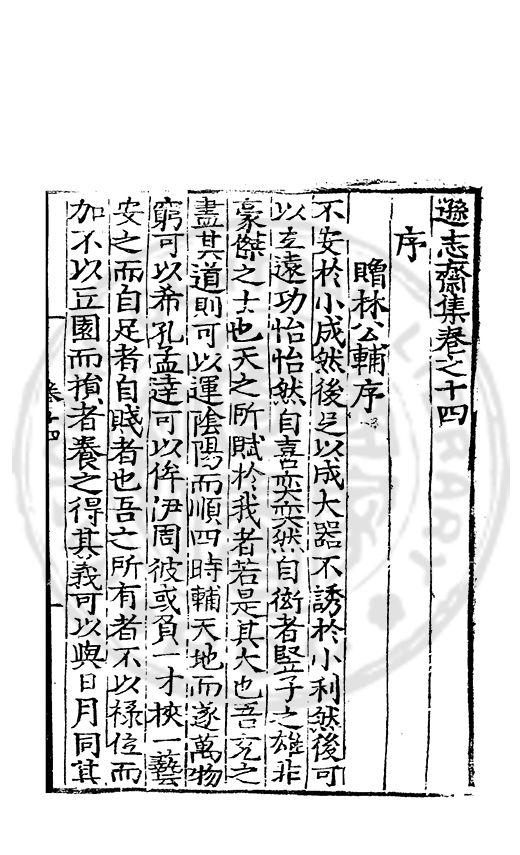 遜志齋集卷之十四
序
贈林公輔序
不安於小成然後足以成大器不誘於小利然後可
以立遠功怡怡然自喜奕奕然自衒者竪子之雄非
豪傑之士也天之所賦於我者若是其大也吾充之
盡其道則可以運陰陽而順四時輔天地而遂萬物
窮可以希孔孟達可以侔伊周彼或負一才挾一藝
安之而自足者自賊者也吾之所有者不以祿位而
加不以丘園而損者養之得其義可以與日月同其
卷十四